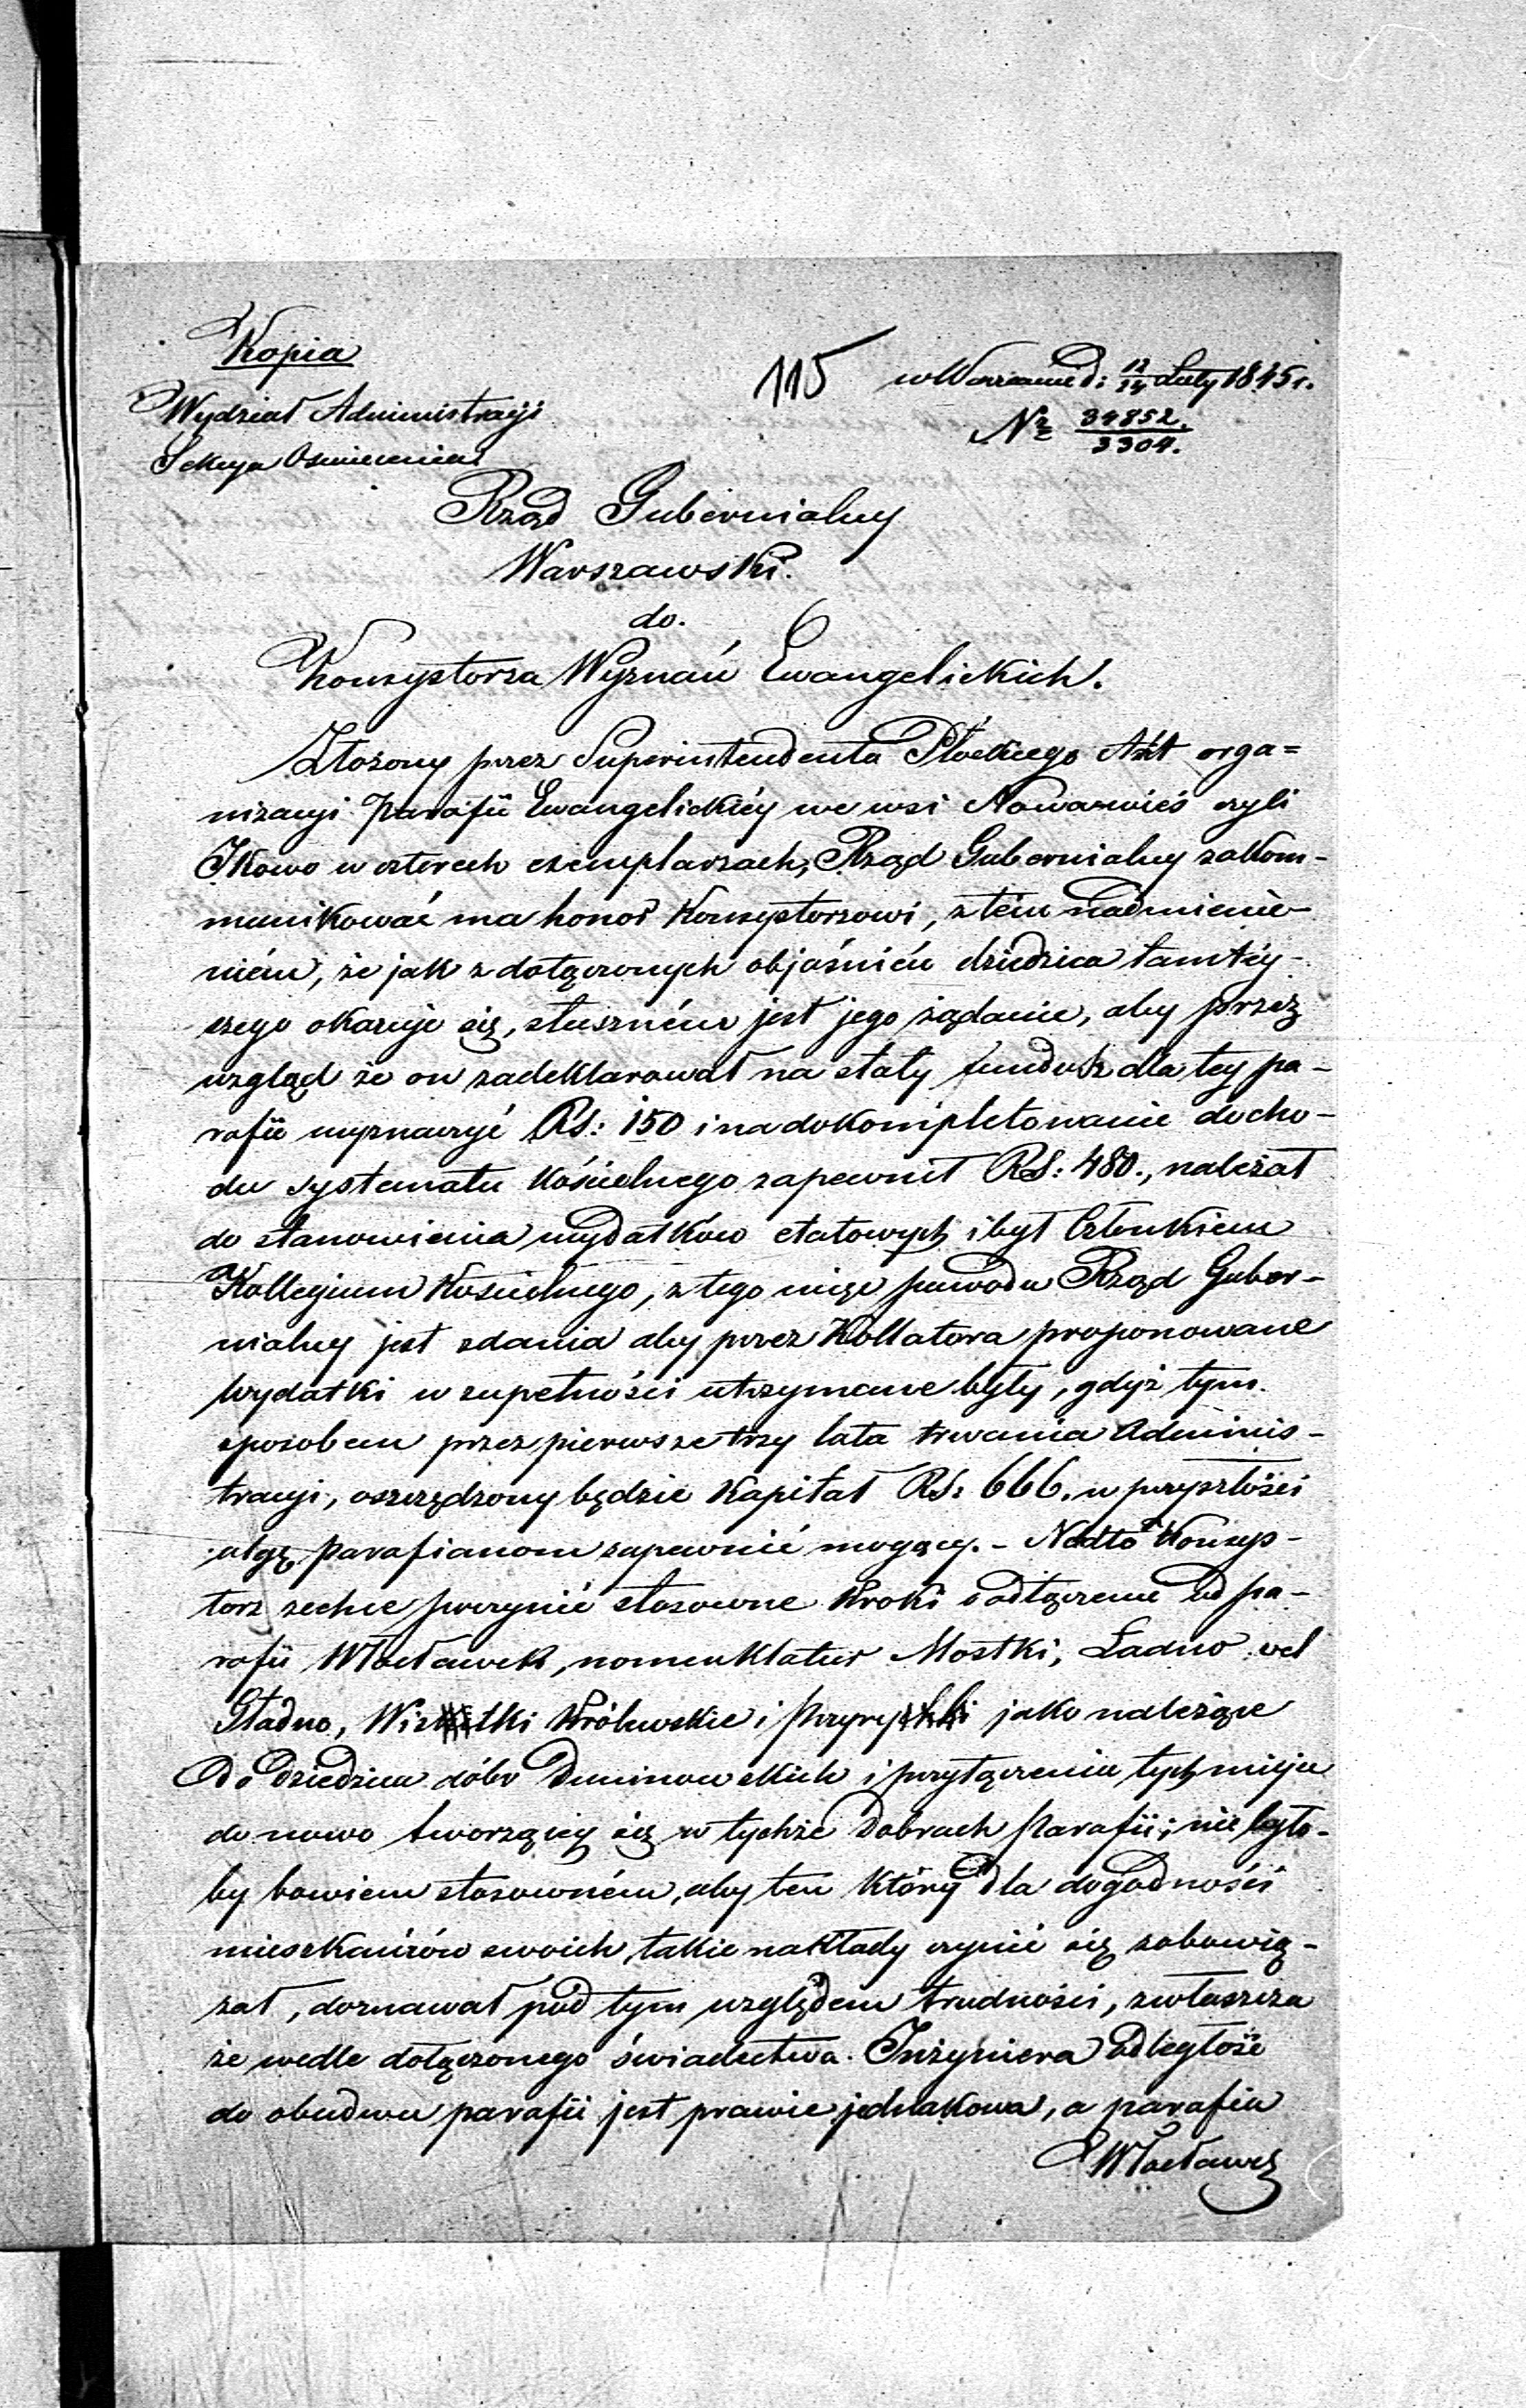 Kopia
115 w Warszawie d: 12/24 Luty 1845 r.
Wydział Administracyi
Nr 34852./3304.
Sekcya Oświecenia
Rząd Gubernialny
Warszawski.
do.
Konsystorza Wyznań Ewangelickich.
Złożony przez Superintendenta Płockiego Akt orga=
nizacyi Parafii Ewangelickiéy we wsi Nowawieś czyli
w czterech exemplarzach, Rząd Gubernialny zakom-
munikować ma honor Konsystorzowi, z tém nadmienie-
niém, że jak z dołączonych objaśnień dziedzica tamtéy-
szego okazuje się, słuszném jest jego żądanie, aby przez
wzgląd że on zadeklarował na stały fundusz dla tey pa-
rafii wyznaczyć RS: 150 i na dokompletowanie docho-
du systematu kościelnego zapewnił RS: 480., należał
do stanowienia wydatków etatowych i był Członkiem
Kollegium Kościelnego, z tego więc powodu Rząd Guber-
nialny jest zdania aby przez Kollatora proponowane
wydatki w zupełności utrzymane były, gdyż tym
sposobem przez pierwsze trzy lata trwania Adminis-
tracyi, oszczędzony będzie Kapitał RS: 666. w przyszłości
ulgę parafianom zapewnić mogący. - Nadto Konsys-
torz zechce poczynić stosowne kroki o odłączenie od pa-
rafii Włocławek, nomenklatur Mostki, Ładno vel
Gładno, Królewskie i jako należące
do dziedzica dóbr Duninowskich i przyłączenia tych miejsc
do nowo tworzącéy się w tychże Dobrach Parafii; nie było-
by bowiem stosowném, aby ten który dla dogodności
mieszkańców swoich, takie nakłady czynić się zobowią-
zał, doznawał pod tym względem trudności, zwłaszcza
że wedle dołączonego świadectwa Inżyniera odległość
do obudwu parafii jest prawie jednakowa, a parafia
Włocławek